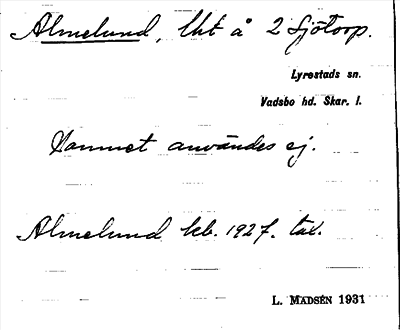 Almelund, lht å 2 Sjötorp.
Lyrestads sn.
Vadsbo hd. Skar. l.
Namnet användes ej.
Almelund kb. 1927. tal.
L. MADSÉN 1931